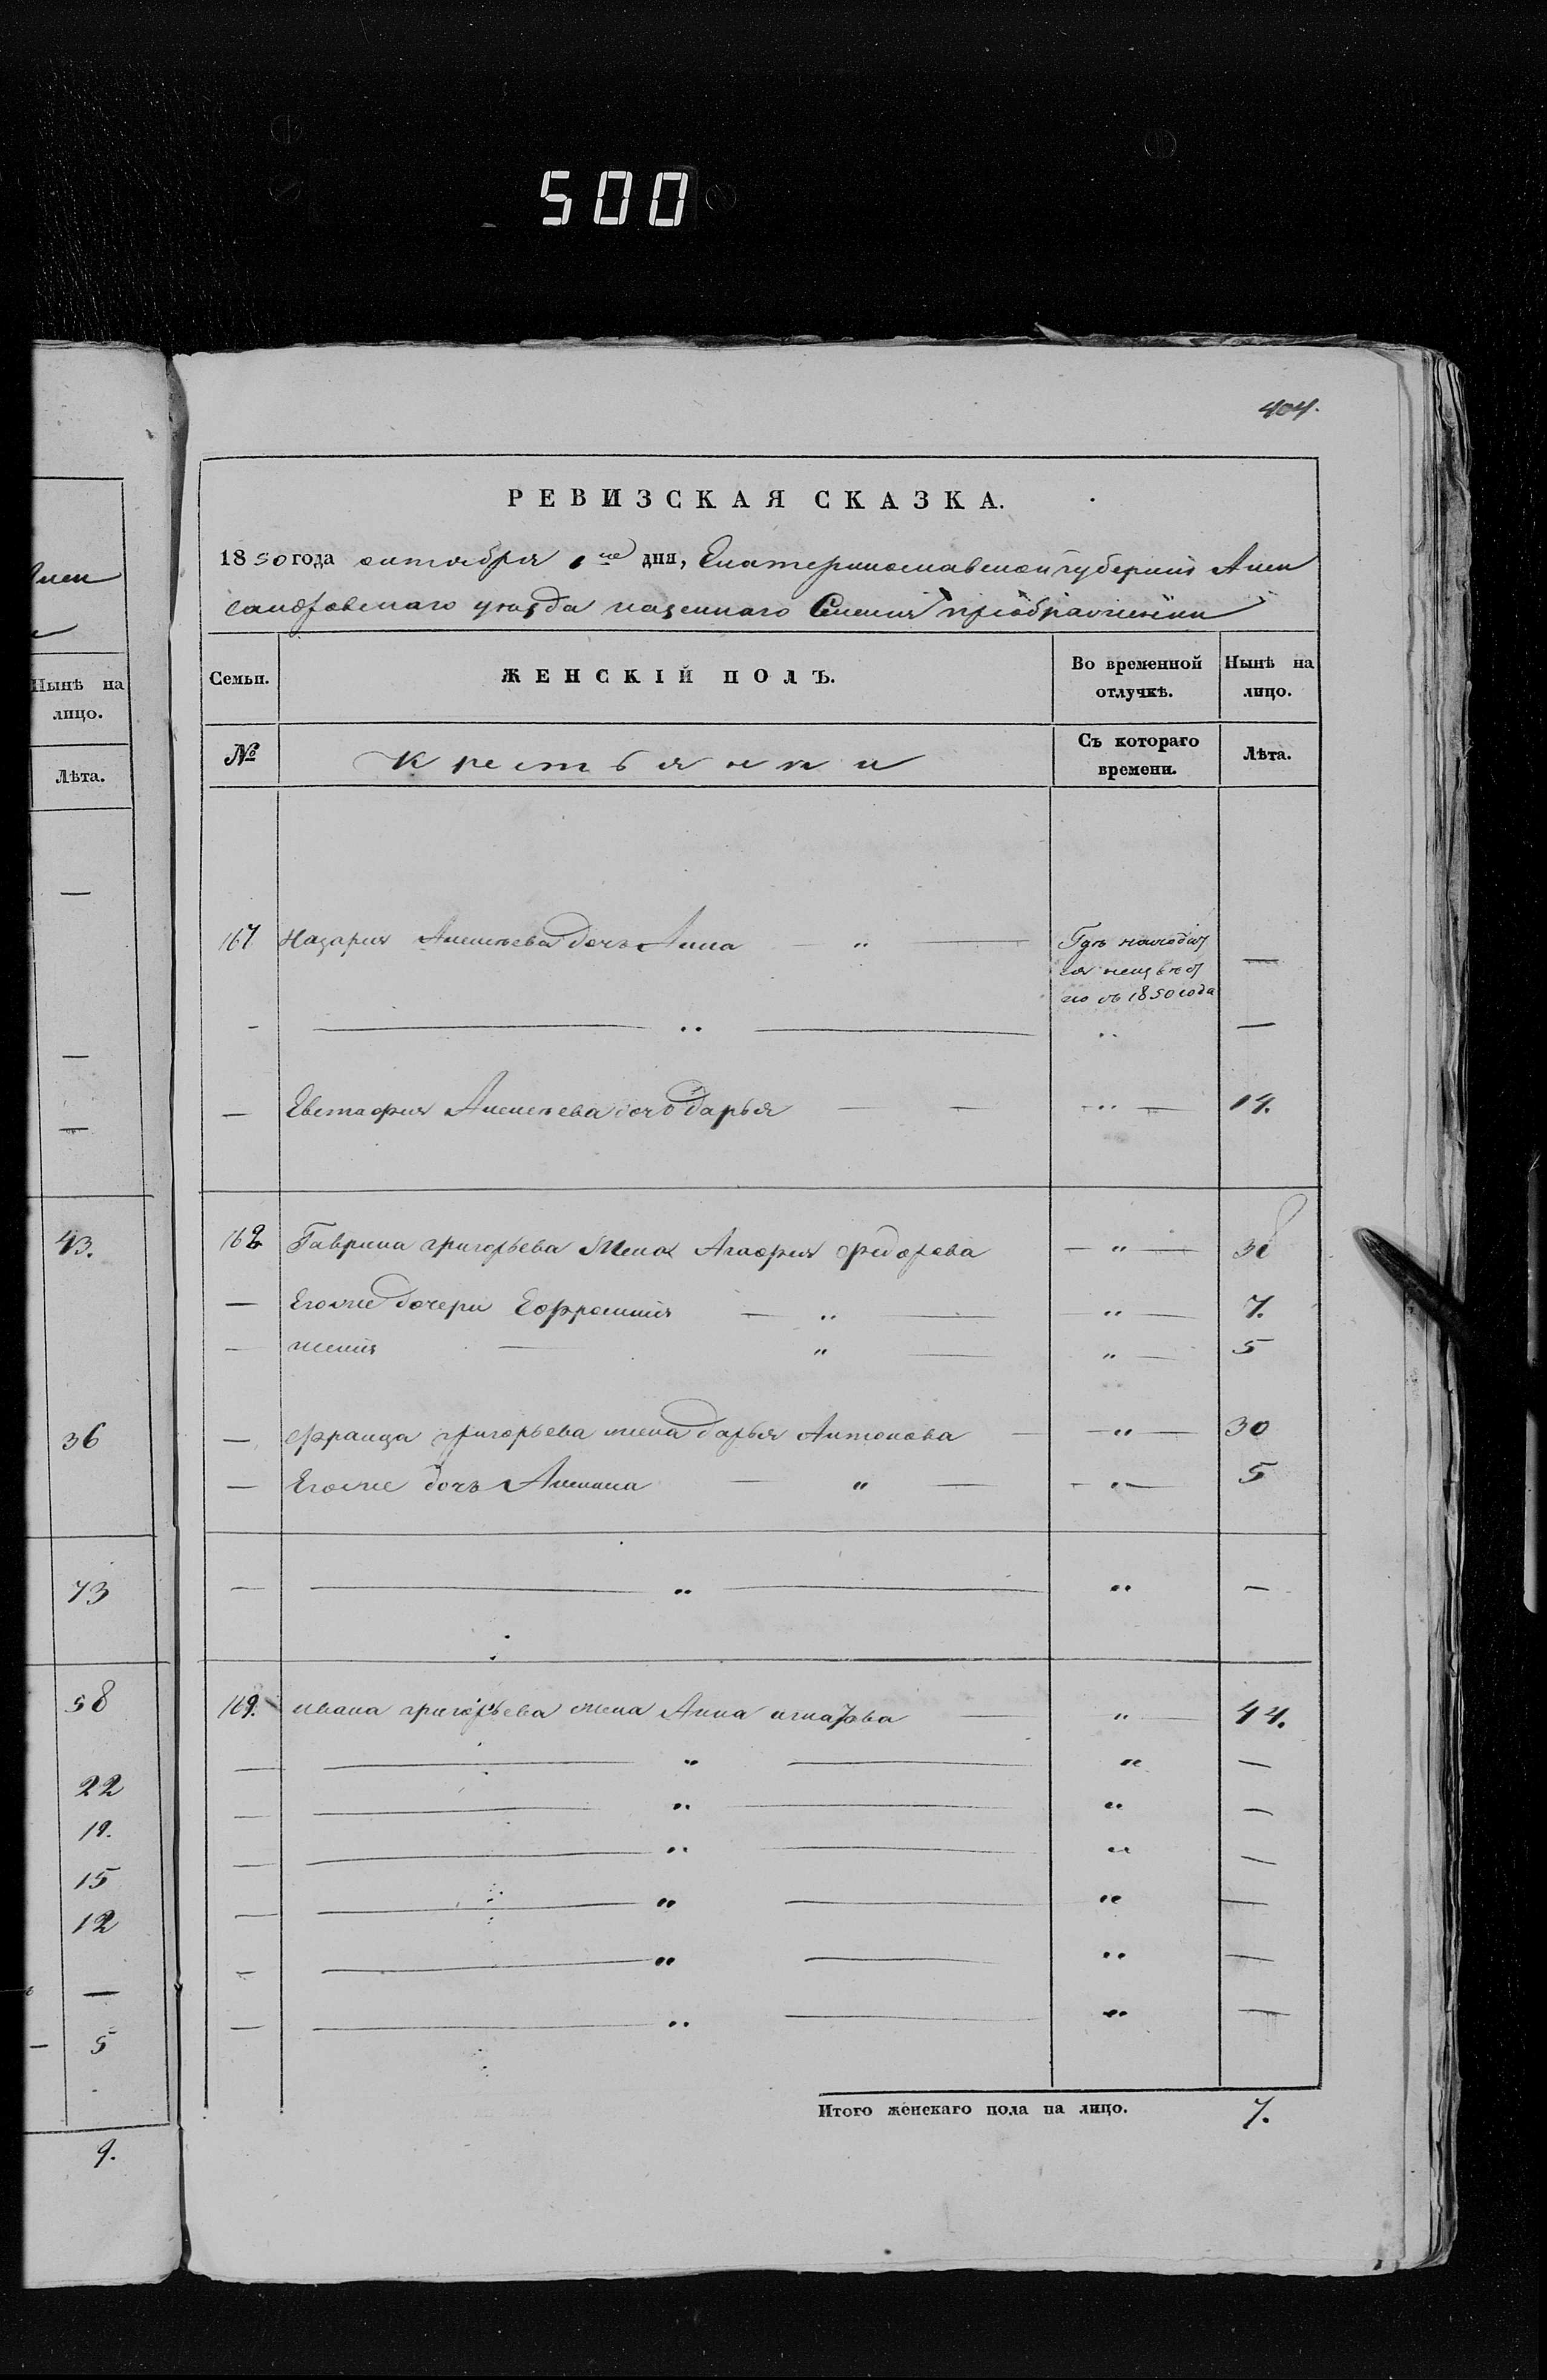 500
404.
РЕВИЗСКАЯ СКАЗКА.
1850 года октября 1го дня, Екатеринославской губернии Алек
сандровскаго уезда казеннаго Селения преображенки
Нынѣ на
лицо.
Лѣта.
Семьи.
ЖЕНСКІЙ ПОЛЪ.
Во временной
отлучкѣ.
Нынѣ на
лицо.
№
Крестьянки
Съ котораго
времени.
Лѣта.
—
—
—
43.
36
73
58
22
19.
15
12
—
— 5
9.
167 Назария Алексеева дочь Анна — " — Где находит —
ся неизвест
но съ 1850 года
- — " — " —
— Евстафия Алексеева дочь дарья — — " — 14.
168 Гаврила григорьева жена Агафия федорова — " — 38
— Егоже дочери Ефросиния — " — " — 7.
— " — " — 5
— франца григорьева жена дарья Антонова — — " — 30
— Егоже дочь — " — - " — 5
— — " — " —
169. ивана григорьева жена Анна игнатова — " — 44.
— — " — " —
— — " — " —
— — " — " —
— — " — " —
— — " — " —
— — " — " —
Итого женскаго пола на лицо. 7.